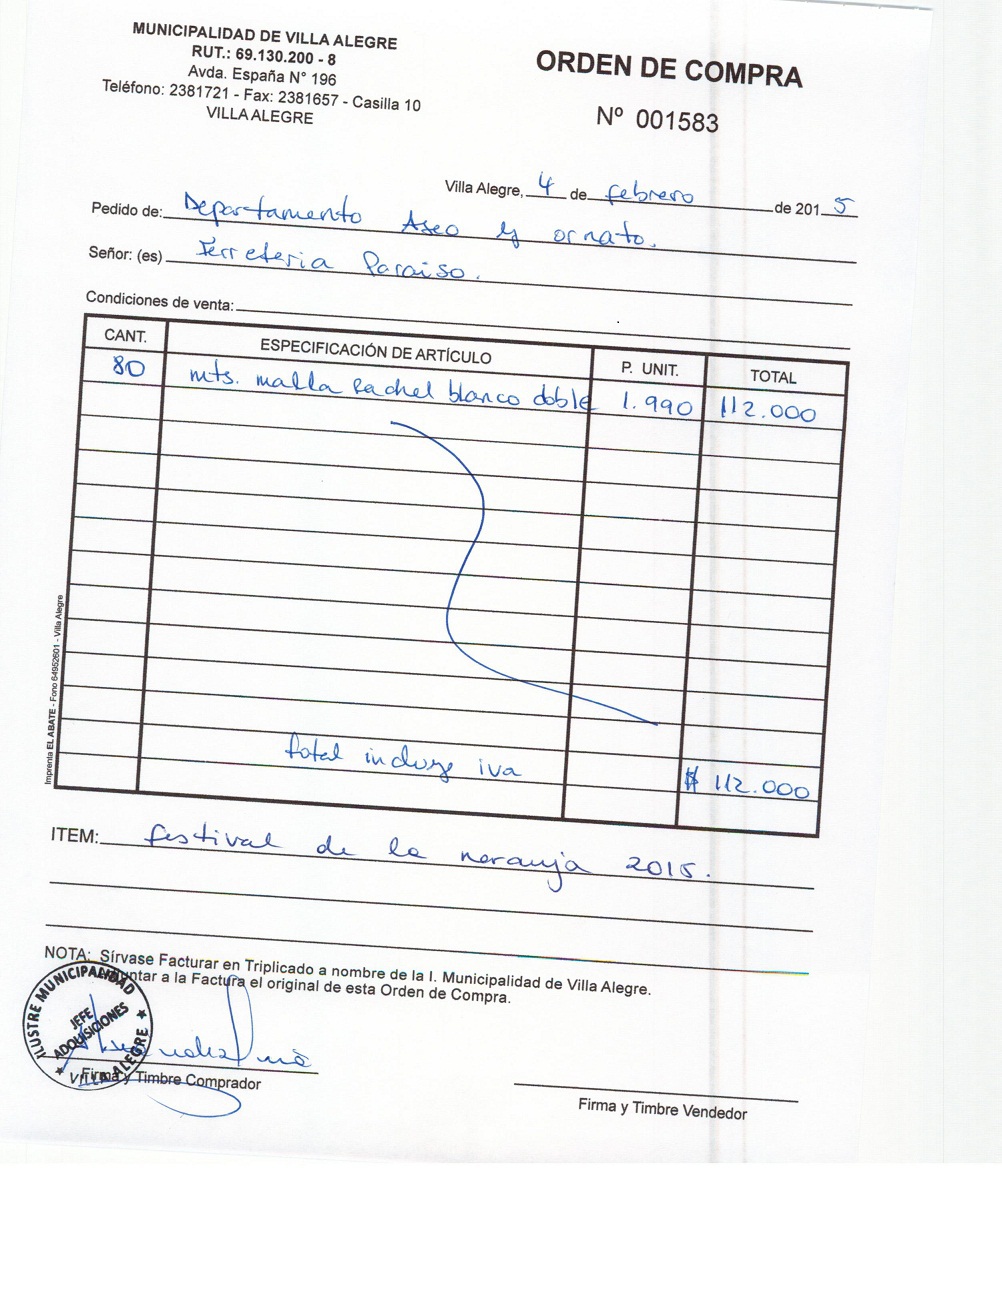 MUNICIPALIDAD DE VILLA ALEGRE
RUT.: 69.130.200 - 8
Avda. España N° 196
Teléfono: 2381721 - Fax: 2381657 - Casilla 10
VILLA ALEGRE
ORDEN DE COMPRA
Nº 001583
Villa Alegre, 4 de febrero de 2015
Pedido de: Departamento Aseo y ornato.
Señor: (es) Ferreteria Paraiso.
Condiciones de venta:
CANT. ESPECIFICACIÓN DE ARTÍCULO P. UNIT. TOTAL
80 mts. malla Rachel blanco doble 1.990 112.000
total incluye iva $ 112.000
Imprenta EL ABATE - Fono 64952601 - Villa Alegre
ITEM: festival de la naranja 2015.
NOTA: Sírvase Facturar en Triplicado a nombre de la I. Municipalidad de Villa Alegre.
a la Factura el original de esta Orden de Compra.
ILUSTRE MUNICIPALIDAD
JEFE
ADQUISICIONES
VILLA ALEGRE
Firma y Timbre Comprador
Firma y Timbre Vendedor